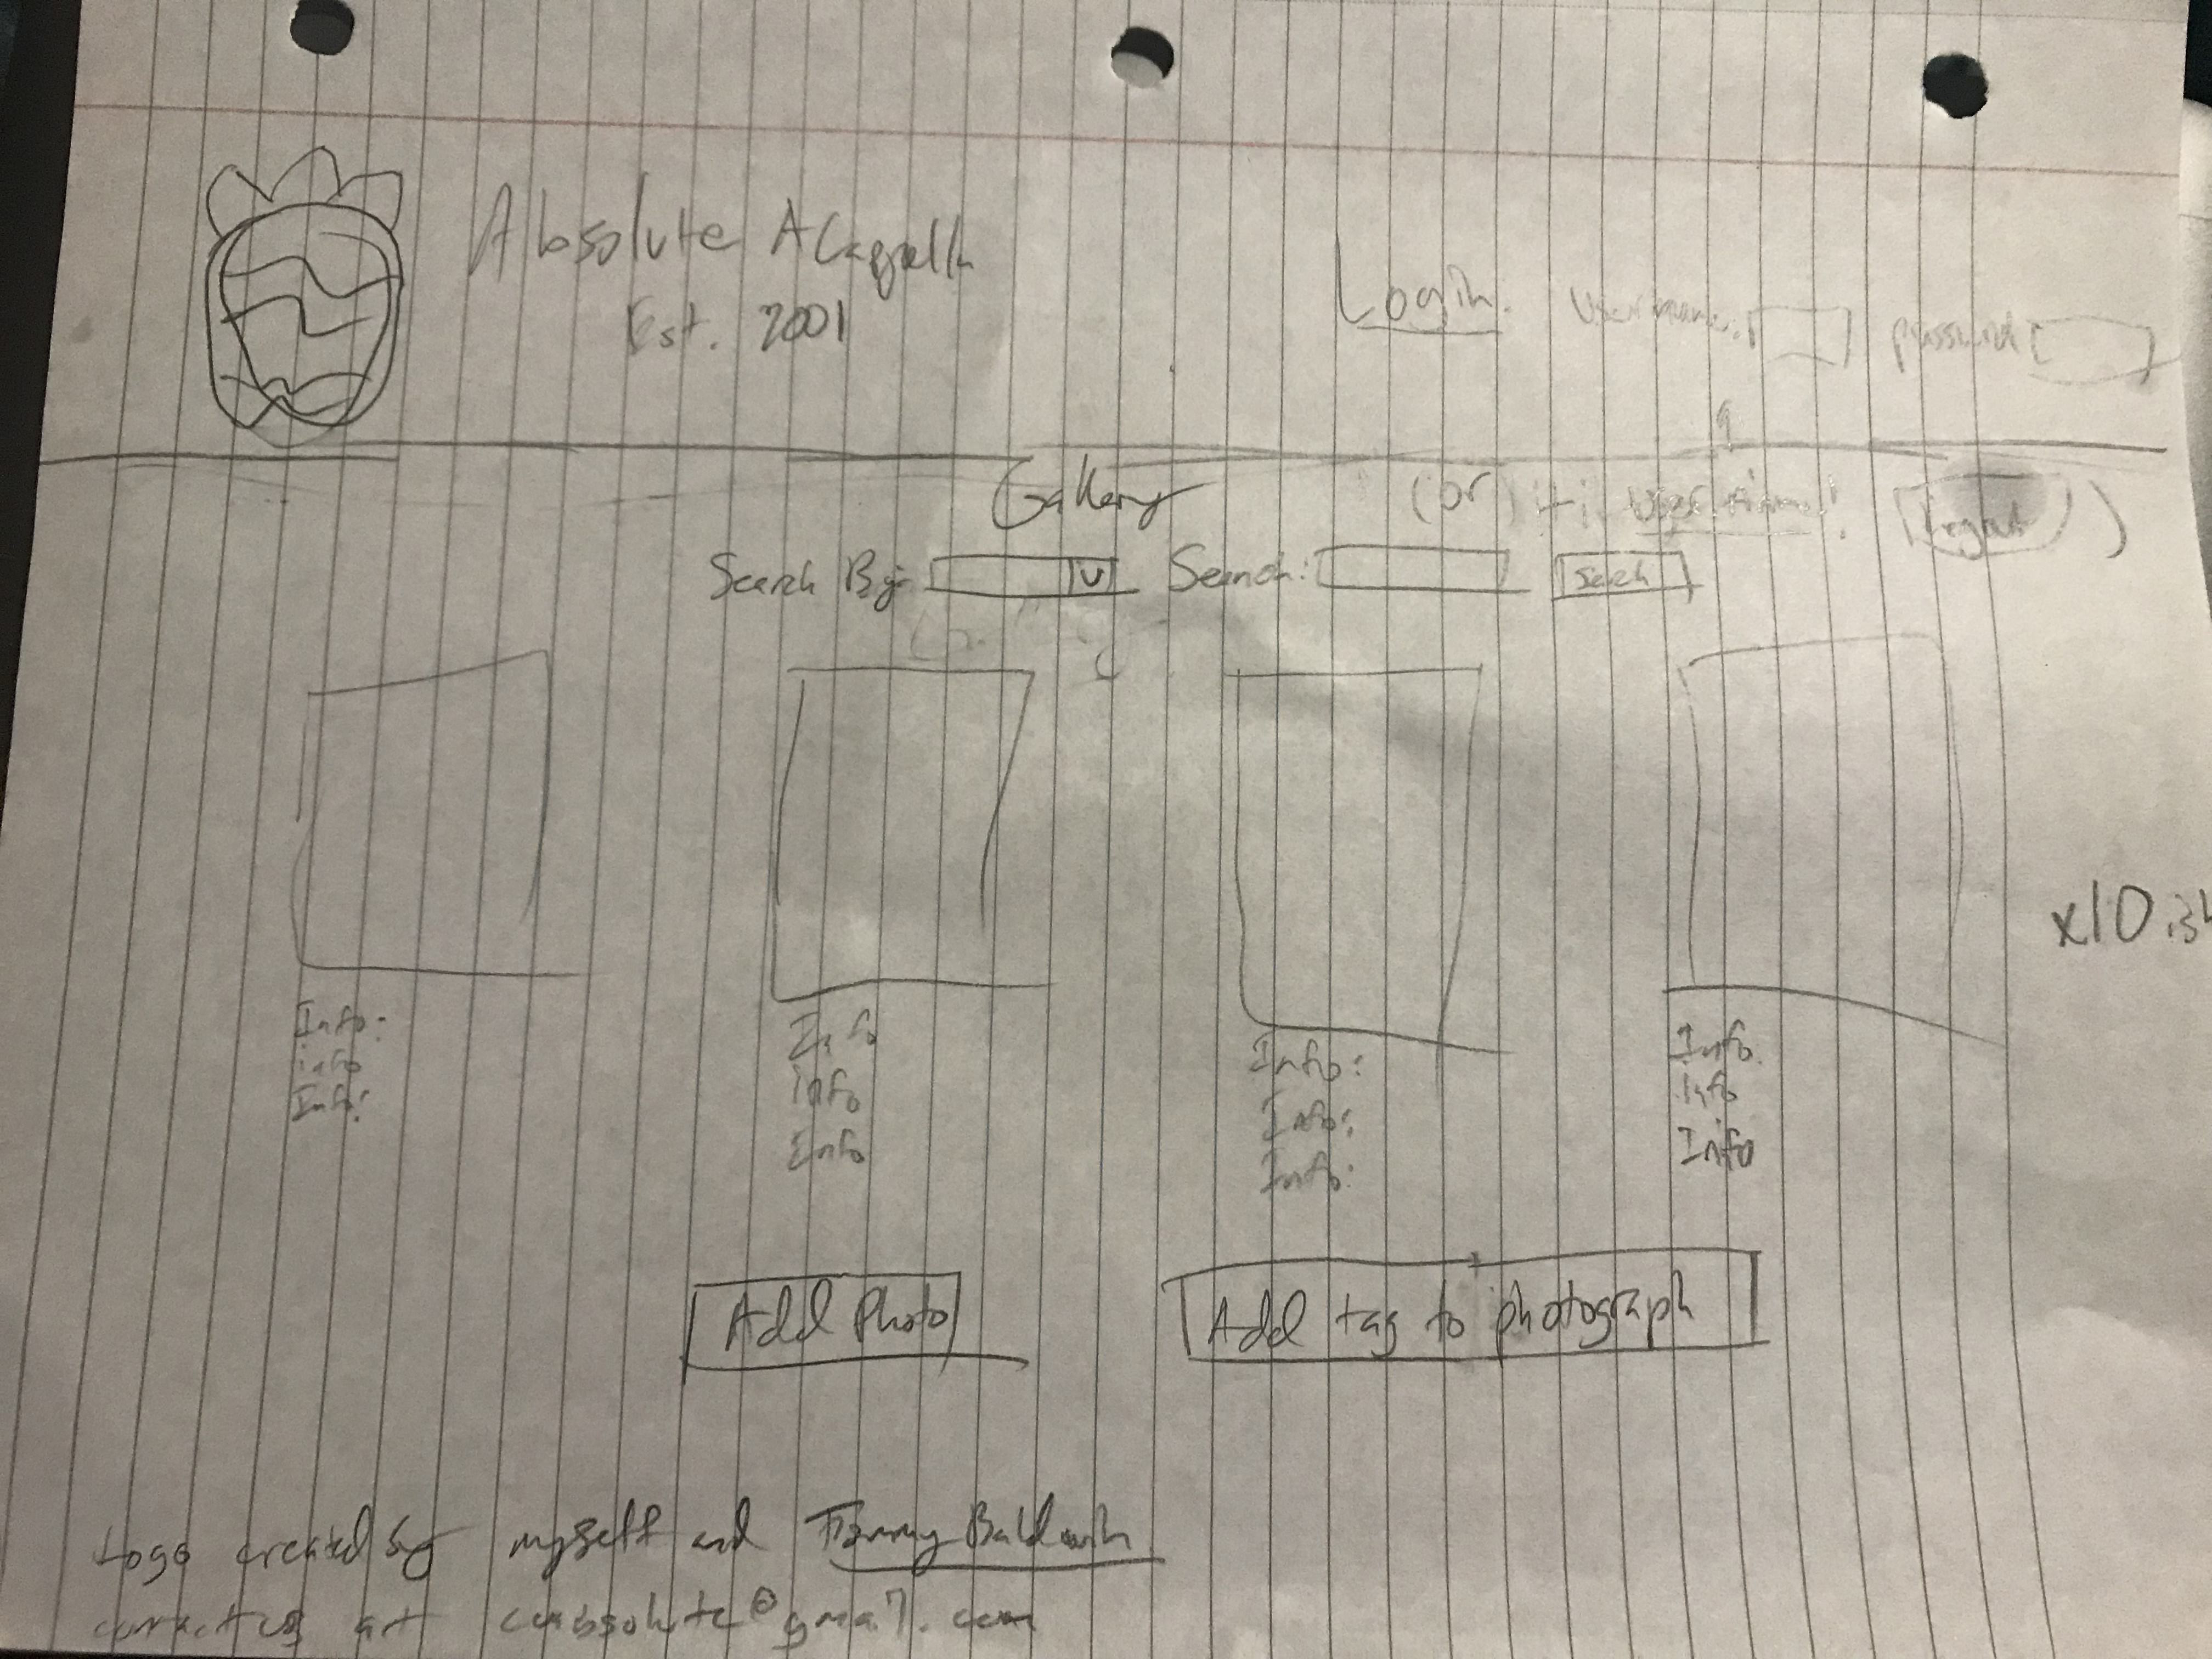 Absolute ACapella
Est. 2001
Login. username: password
Gallery (or) Hi username! Logout )
Search By: V Search: Serch
x10.
Info: Info Info: Info
info Info Info: Info
Info: Info Info: Info
Add Photo Add tag to photograph
Logo created by myself and Baldwin
contact us at cuabsolute@gmail.com